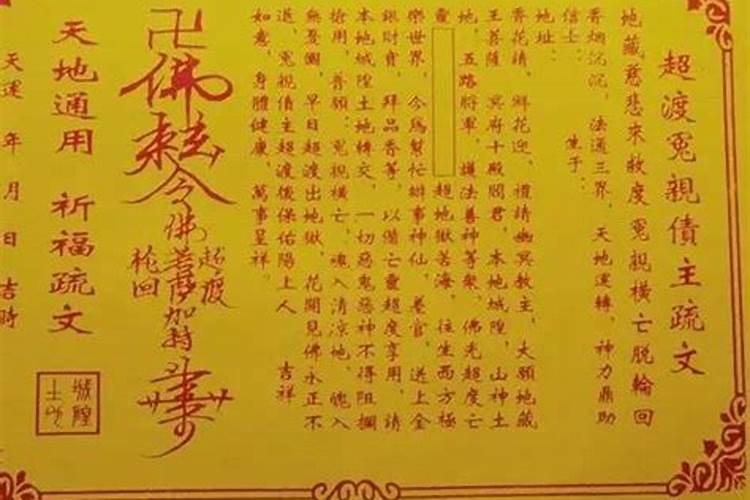 超渡冤親債主疏文
地藏慈悲來救度冤親橫亡脫輪回
香烟沉沉，法通三界，天地運轉，神力鼎助
信士：　生于：
地址：
香花請，鮮花迎，禮請幽冥教主，大願地藏
王菩薩　冥府十殿閻君，本地城隍，山神土
地，五路將軍，護法善神等衆，佛光超度亡
靈　超地獄苦海，往生西方極
樂世界，今爲幫忙辦事神仙，差官，送上金
銀財寶，拜品香等，以備亡靈超度享用，請
本地城隍土地轉交，一切惡鬼惡神不得阻攔
搶用，普願：冤親橫亡，魂入清凉地，魄入
無憂國，早日超渡出地獄，花開見佛永正不
退，冤親債主超渡後保佑陽上人　吉祥
如意，身體健康，萬事呈祥。
卍
佛
令
佛菩薩加持
超渡
輪回
天地通用　祈福疏文
城隍
土地
天運　年　月　日　吉時